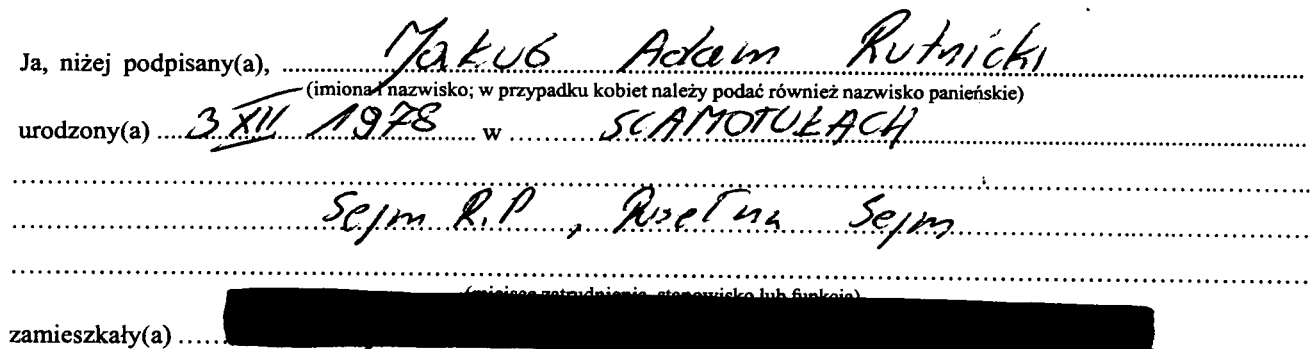 Ja, niżej podpisany(a), Jakub Adam Rutnicki
(imiona i nazwisko; w przypadku kobiet należy podać również nazwisko panieńskie)
urodzony(a) 3 XII 1978 w SZAMOTUŁACH
Sejm R.P, Poseł na Sejm
(miejsce zatrudnienia, stanowisko lub funkcja)
zamieszkały(a)